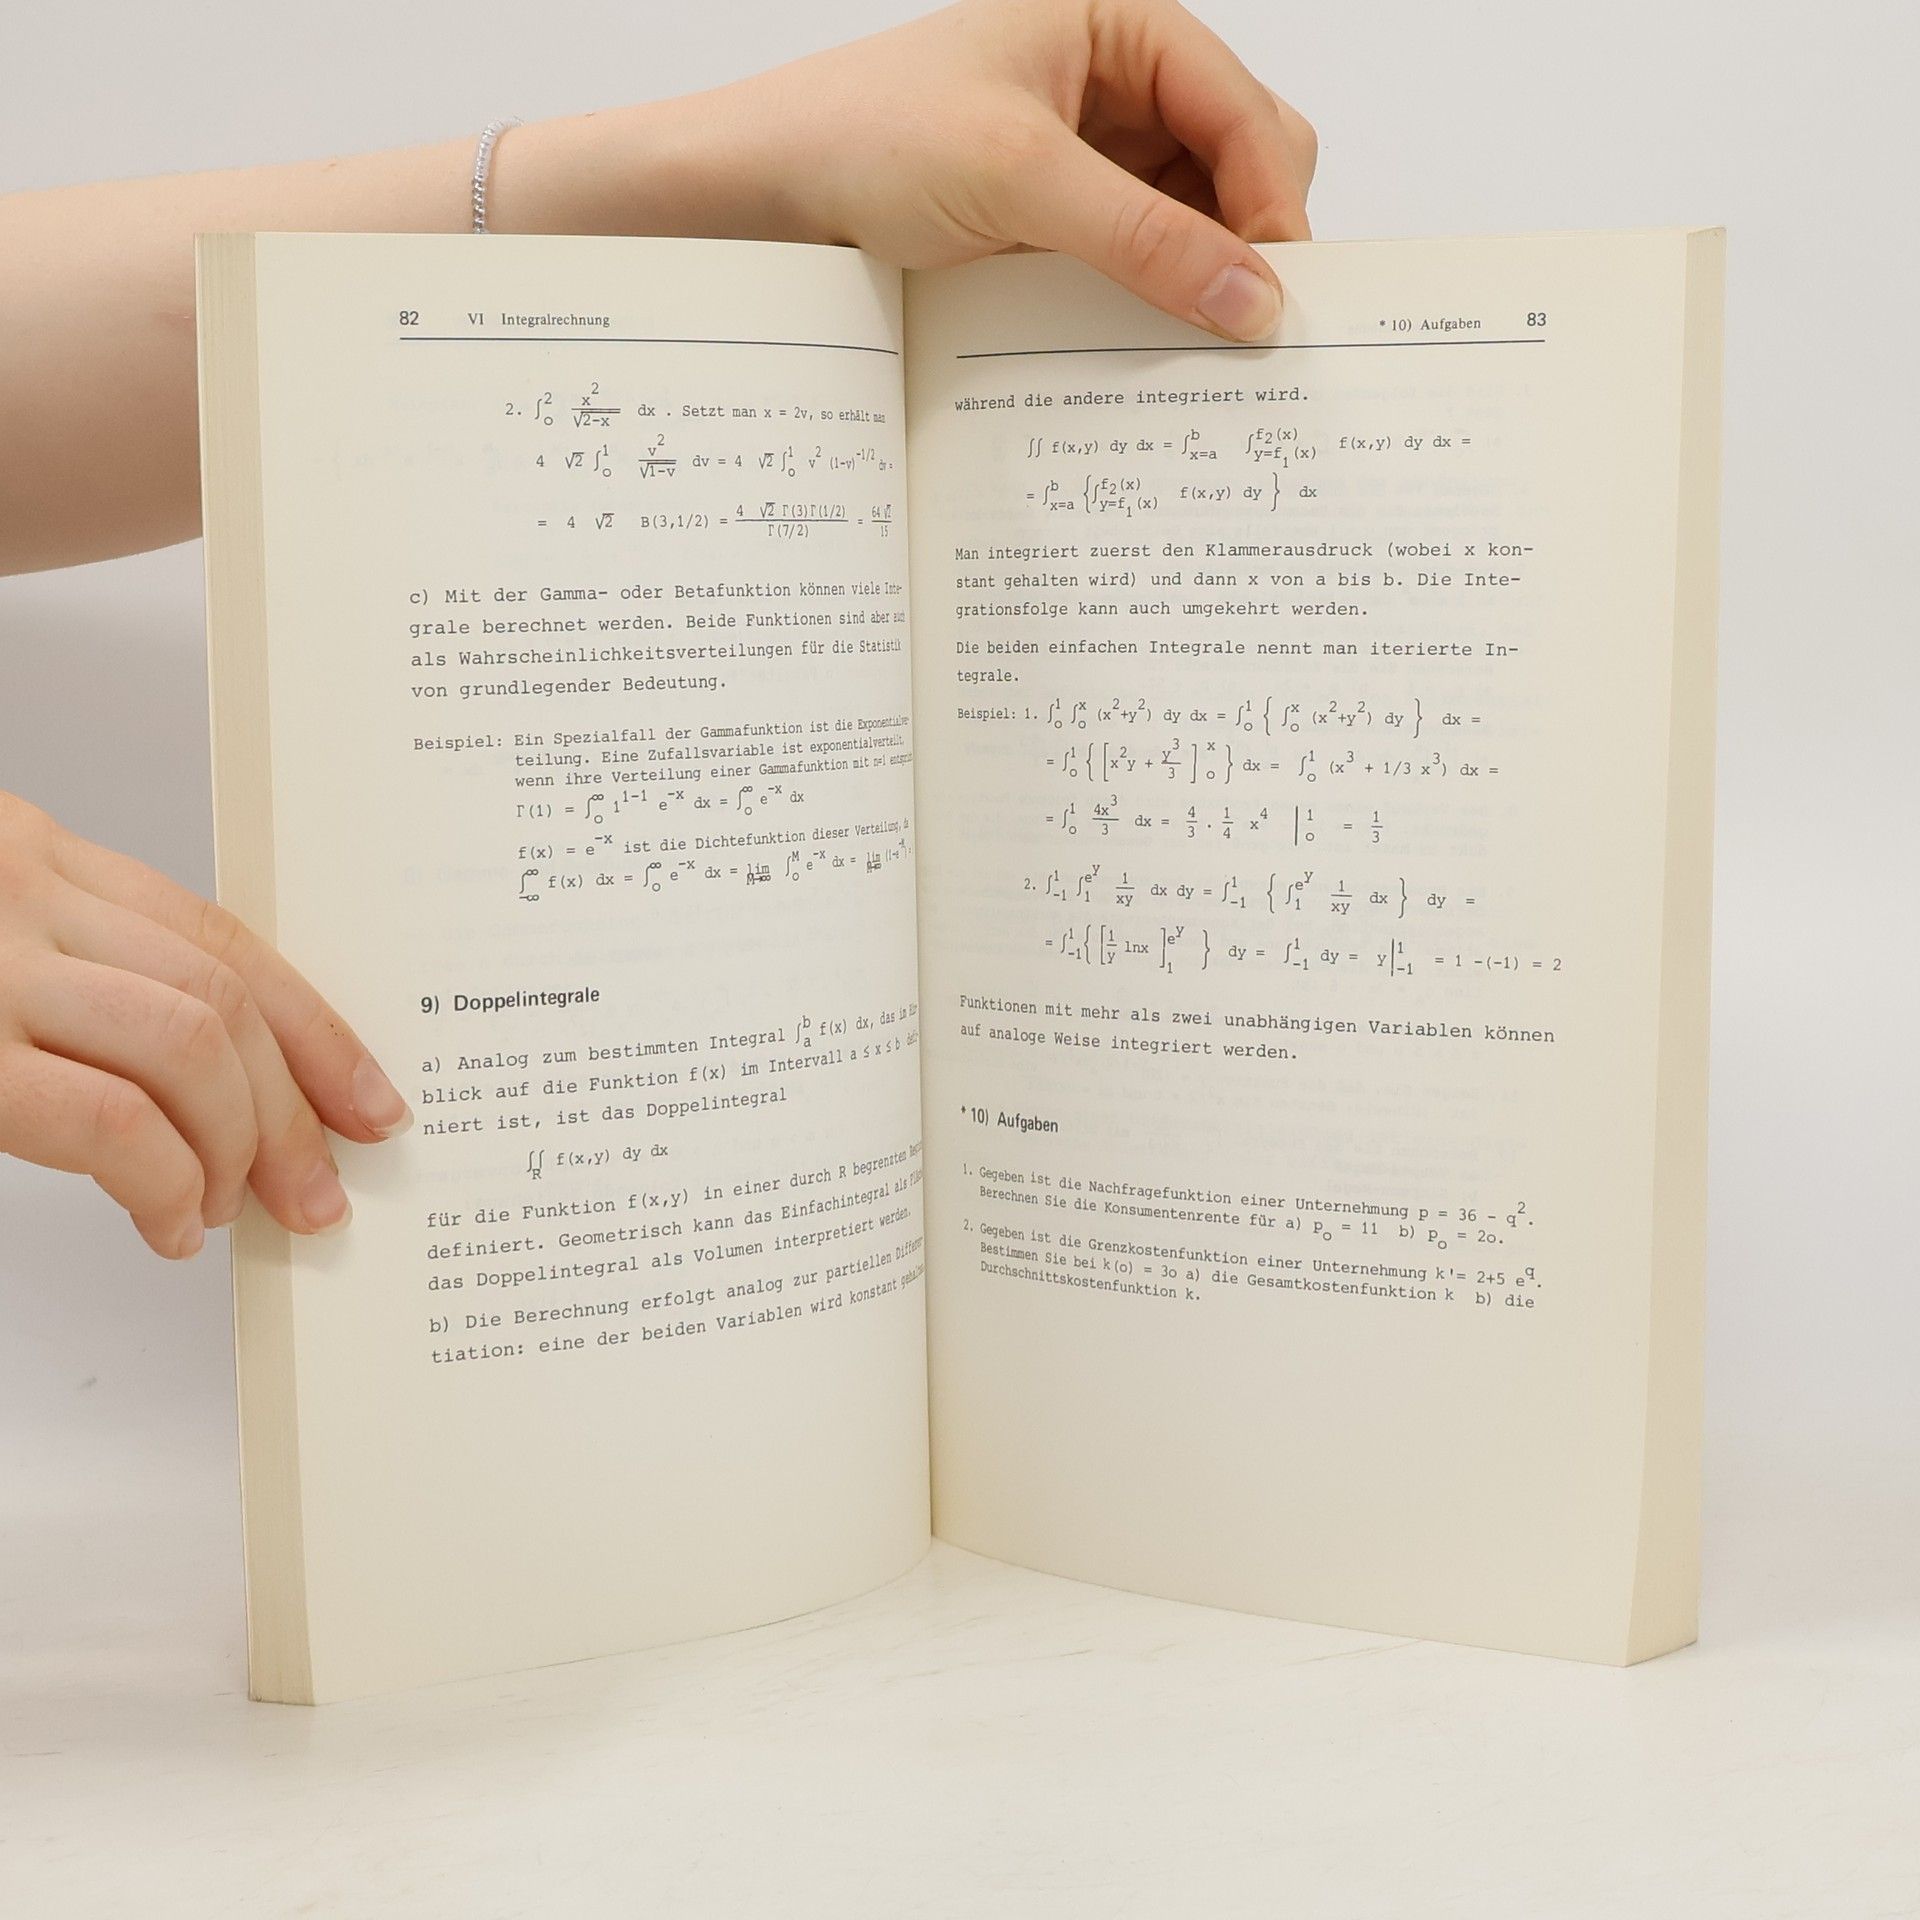 82 VI Integralrechnung
2. ∫₀² x²/√(2-x) dx . Setzt man x = 2v, so erhält man
4 √2 ∫₀¹ v²/√(1-v) dv = 4 √2 ∫₀¹ v² (1-v)^(-1/2) dv =
= 4 √2 B(3,1/2) = 4 √2 Γ(3)Γ(1/2)/Γ(7/2) = 64√2/15
c) Mit der Gamma- oder Betafunktion können viele Inte-
grale berechnet werden. Beide Funktionen sind aber auch
als Wahrscheinlichkeitsverteilungen für die Statistik
von grundlegender Bedeutung.
Beispiel: Ein Spezialfall der Gammafunktion ist die Exponentialver-
teilung. Eine Zufallsvariable ist exponentialverteilt,
wenn ihre Verteilung einer Gammafunktion mit n=1 entspricht
Γ(1) = ∫₀^∞ 1^(1-1) e^(-x) dx = ∫₀^∞ e^(-x) dx
f(x) = e^(-x) ist die Dichtefunktion dieser Verteilung, da
∫_(-∞)^∞ f(x) dx = ∫₀^∞ e^(-x) dx = lim_(M→∞) ∫₀^M e^(-x) dx = lim_(M→∞) (1-e^(-M)) =
9) Doppelintegrale
a) Analog zum bestimmten Integral ∫ₐᵇ f(x) dx, das im Hin-
blick auf die Funktion f(x) im Intervall a ≤ x ≤ b defi-
niert ist, ist das Doppelintegral
∬_R f(x,y) dy dx
für die Funktion f(x,y) in einer durch R begrenzten
definiert. Geometrisch kann das Einfachintegral als Fläche
das Doppelintegral als Volumen interpretiert werden.
b) Die Berechnung erfolgt analog zur partiellen Differen-
tiation: eine der beiden Variablen wird konstant gehalten
* 10) Aufgaben 83
während die andere integriert wird.
∬ f(x,y) dy dx = ∫_(x=a)^b ∫_(y=f₁(x))^(f₂(x)) f(x,y) dy dx =
= ∫_(x=a)^b {∫_(y=f₁(x))^(f₂(x)) f(x,y) dy } dx
Man integriert zuerst den Klammerausdruck (wobei x kon-
stant gehalten wird) und dann x von a bis b. Die Inte-
grationsfolge kann auch umgekehrt werden.
Die beiden einfachen Integrale nennt man iterierte In-
tegrale.
Beispiel: 1. ∫₀¹ ∫₀ˣ (x²+y²) dy dx = ∫₀¹ { ∫₀ˣ (x²+y²) dy } dx =
= ∫₀¹ { [x²y + y³/3]₀ˣ } dx = ∫₀¹ (x³ + 1/3 x³) dx =
= ∫₀¹ 4x³/3 dx = 4/3 . 1/4 x⁴ |₀¹ = 1/3
2. ∫₋₁¹ ∫₁^(e^y) 1/xy dx dy = ∫₋₁¹ { ∫₁^(e^y) 1/xy dx } dy =
= ∫₋₁¹ { [1/y lnx]₁^(e^y) } dy = ∫₋₁¹ dy = y|₋₁¹ = 1 -(-1) = 2
Funktionen mit mehr als zwei unabhängigen Variablen können
auf analoge Weise integriert werden.
* 10) Aufgaben
1. Gegeben ist die Nachfragefunktion einer Unternehmung p = 36 - q².
Berechnen Sie die Konsumentenrente für a) p₀ = 11 b) p₀ = 2o.
2. Gegeben ist die Grenzkostenfunktion einer Unternehmung k'= 2+5 e^q.
Bestimmen Sie bei k(o) = 3o a) die Gesamtkostenfunktion k b) die
Durchschnittskostenfunktion k.